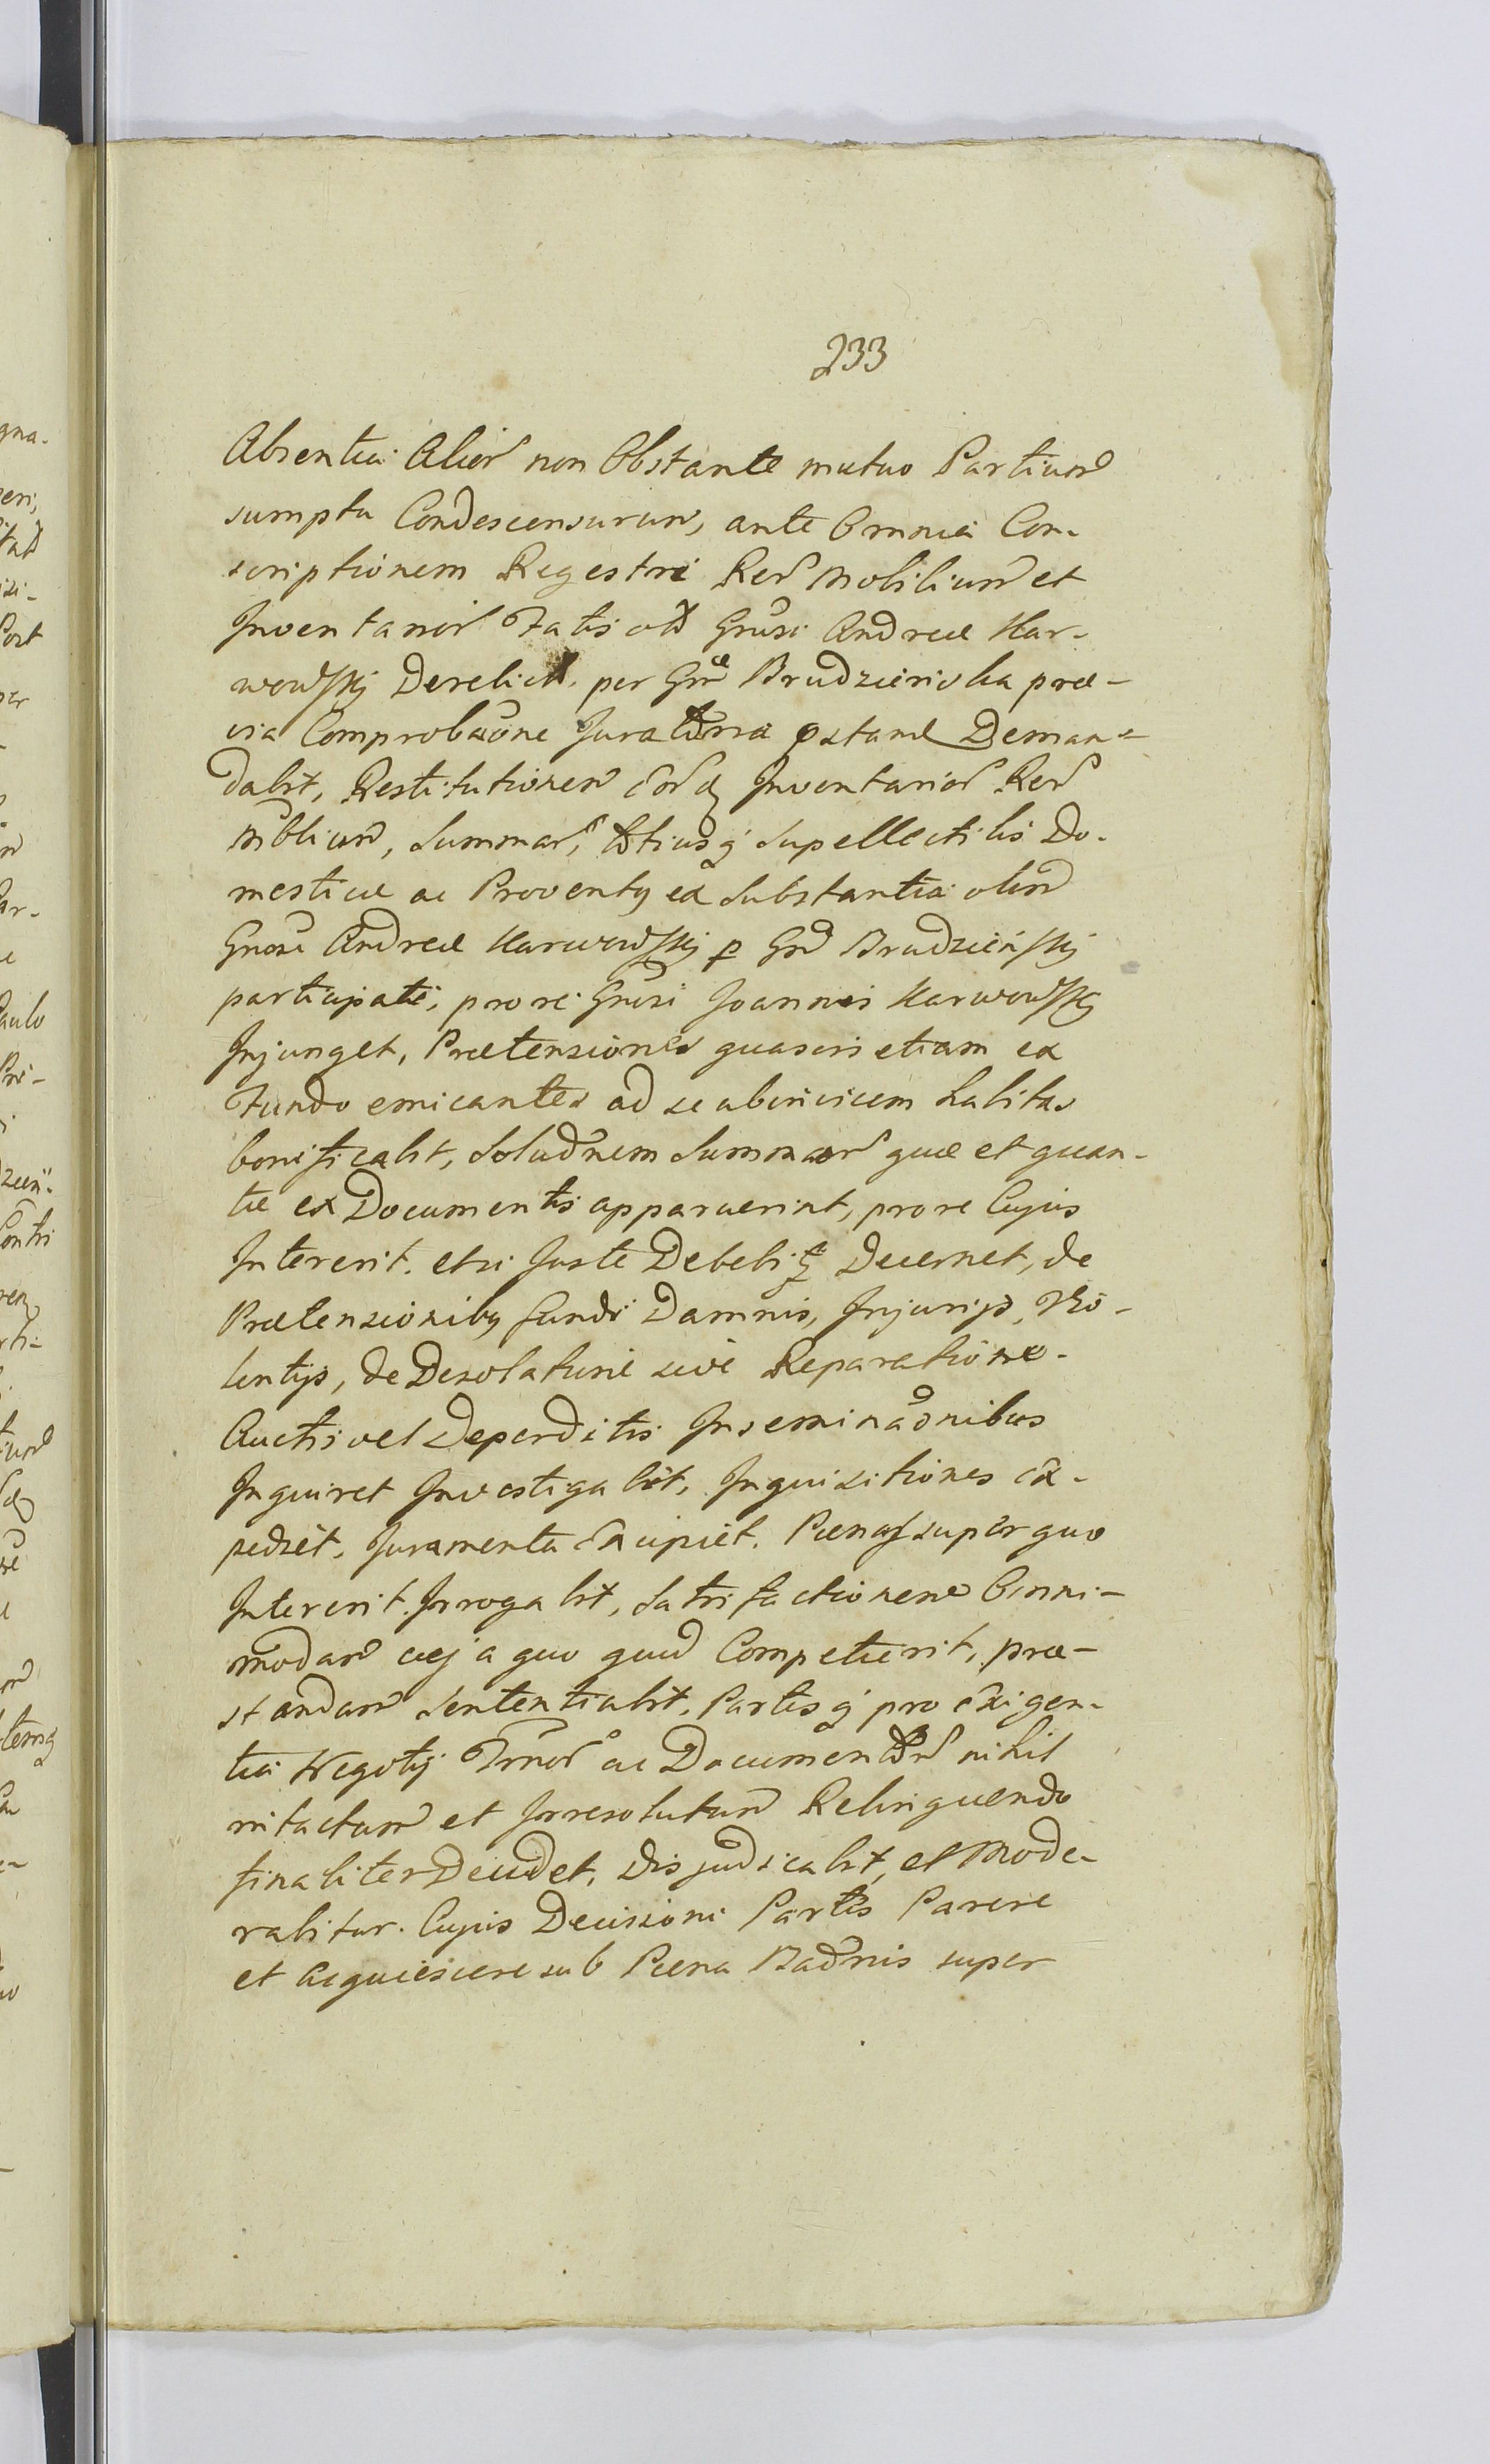 233
Absentia Alior non Obstante mutuo Partium
sumptu Condescensurum, ante Omnia Con-
scriptionem Regestri Rer Mobilium et
Inventarior Fatis old Grusi Andreæ Kar-
wowskij Derelict. per Grm Brudzieńska præ-
via Comprobaõne Juratoria extand Deman-
dabit, Restitutionem Inventarior Rer
Mblium, Summar, totiusq Supellectilis Do-
mesticæ ac Proventq ex Substantia olim
Gnosi Andreæ Karwowskij p Grm Brudzieńskij
participati, pro re Grusi Joannis Karwowskij
Injunget, Prætensiones quasvis etiam ex
Fundo emicantes ad se abinvicem habitas
bonificabit, Soludnem Summar quæ et quan-
tæ ex Documentis apparuerint, pro re Cujus
Intererit. etsi Juste Debebit Decernet, de
Prætensionibq fundi Damnis, Injurijs, Vio-
lentijs, de Desolatione sive Reparatione
Auctis vel Deperditis Inseminaõnibus
Inquiret Investigabit, Inquisitiones ex-
pediet, Juramenta Excipiet. Pænas super quo
Intererit Irrogabit, Satisfactionem Omni-
modam cuj a quo quid Competierit, præ-
standam Sententiabit, Partesq pro exigen-
tia Negotij Trnor ac Documentor nihil
intactum et Irresolutum Relinquendo
finaliter Decidet, Disjudicabit, et Mode-
rabitur. Cujus Decisioni Partes Parere
et Acquiescere sub Pæna Badnnis super